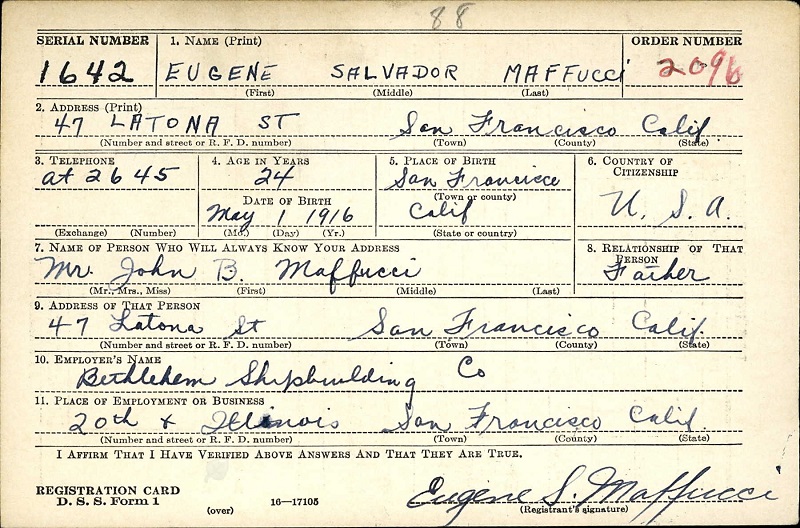 88
SERIAL NUMBER 1. NAME (Print) ORDER NUMBER
1642 EUGENE SALVADOR MAFFUCCI 2096
(First) (Middle) (Last)
2. ADDRESS (Print)
47 LATONA ST San Francisco Calif.
(Number and street or R. F. D. number) (Town) (County) (State)
3. TELEPHONE 4. AGE IN YEARS 5. PLACE OF BIRTH 6. COUNTRY OF CITIZENSHIP
at 2645 24 San Francisco
(Town or county)
DATE OF BIRTH U. S. A.
May 1 1916 Calif
(Exchange) (Number) (Mo.) (Day) (Yr.) (State or country)
7. NAME OF PERSON WHO WILL ALWAYS KNOW YOUR ADDRESS 8. RELATIONSHIP OF THAT PERSON
Mr. John B. Maffucci Father
(Mr., Mrs., Miss) (First) (Middle) (Last)
9. ADDRESS OF THAT PERSON
47 Latona St San Francisco Calif.
(Number and street or R. F. D. number) (Town) (County) (State)
10. EMPLOYER'S NAME
Bethlehem Shipbuilding Co
11. PLACE OF EMPLOYMENT OR BUSINESS
20th & Illinois San Francisco Calif.
(Number and street or R. F. D. number) (Town) (County) (State)
I AFFIRM THAT I HAVE VERIFIED ABOVE ANSWERS AND THAT THEY ARE TRUE.
REGISTRATION CARD
D. S. S. Form 1 (over) 16—17105 Eugene S. Maffucci
(Registrant's signature)